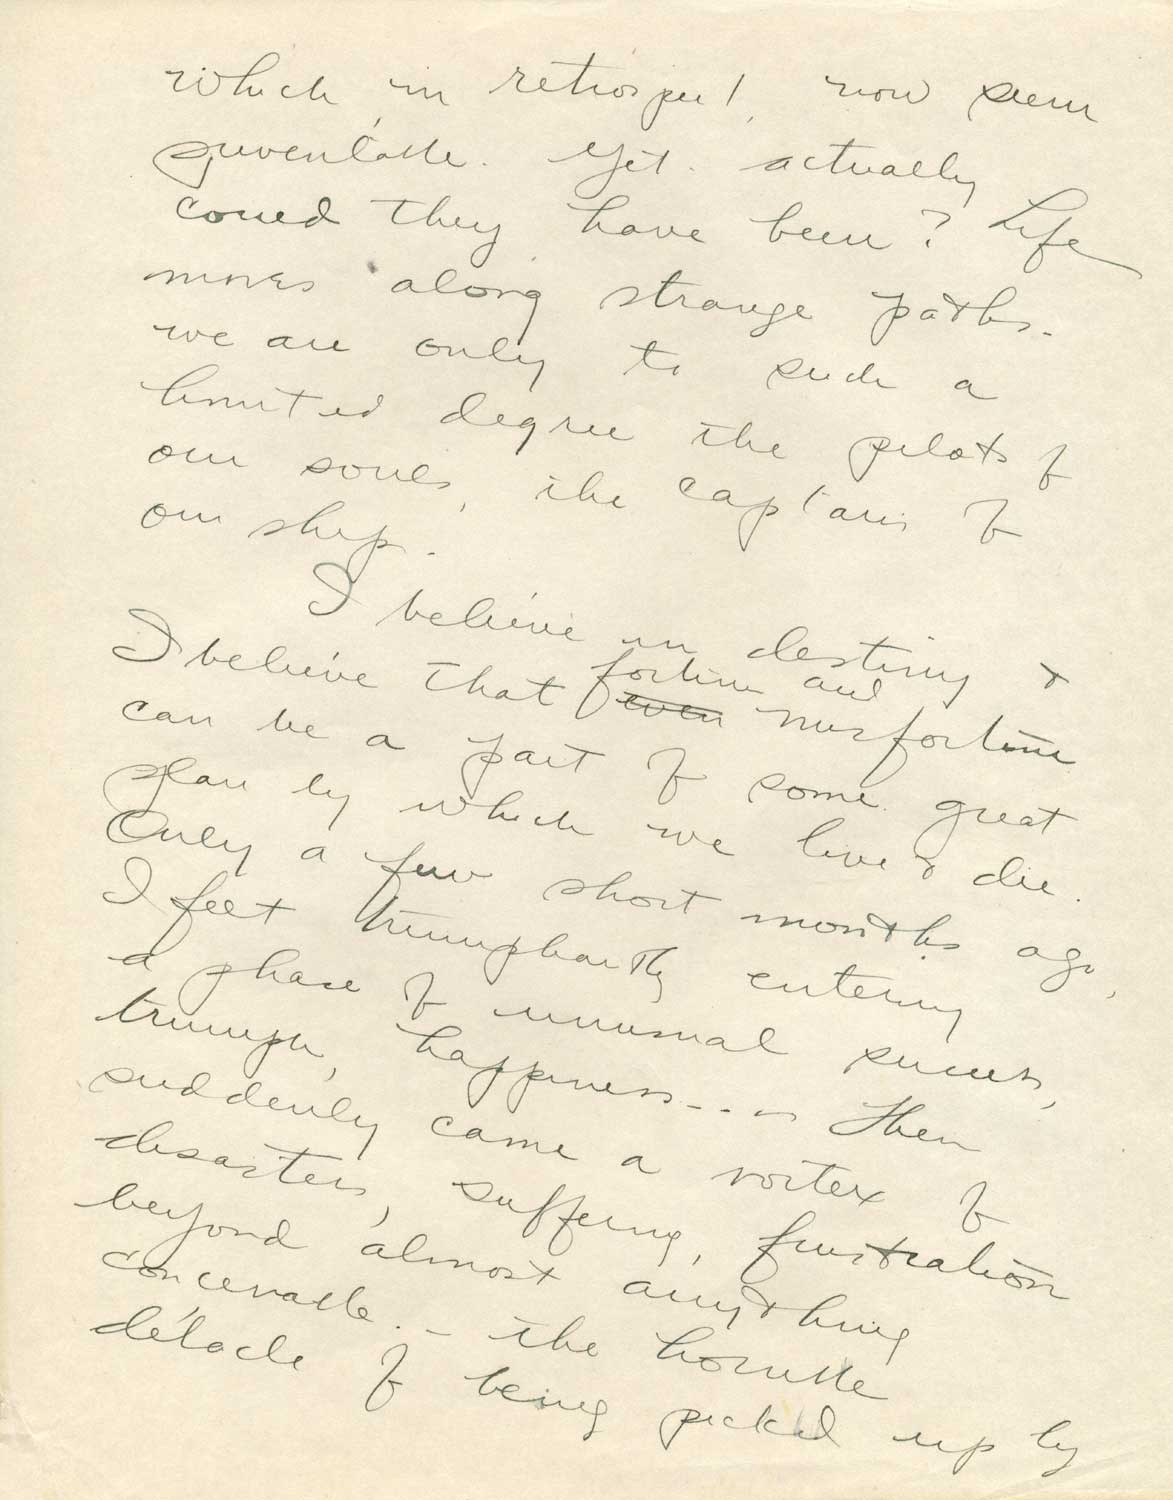 which, in retrospect, now seem
preventable. Yet. actually
could they have been? Life
moves along strange paths.
we are only to such a
limited degree the pilots of
our souls, the captains of
our ship.
I believe in destiny &
I believe that fortune and even misfortune
can be a part of some great
plan by which we live & die.
Only a few short months ago,
I felt triumphantly entering
a phase of unusual success,
triumph, happiness... Then
suddenly came a vortex of
disasters, suffering, frustration
beyond almost anything
conceivable. - the horrible
débacle of being picked up by